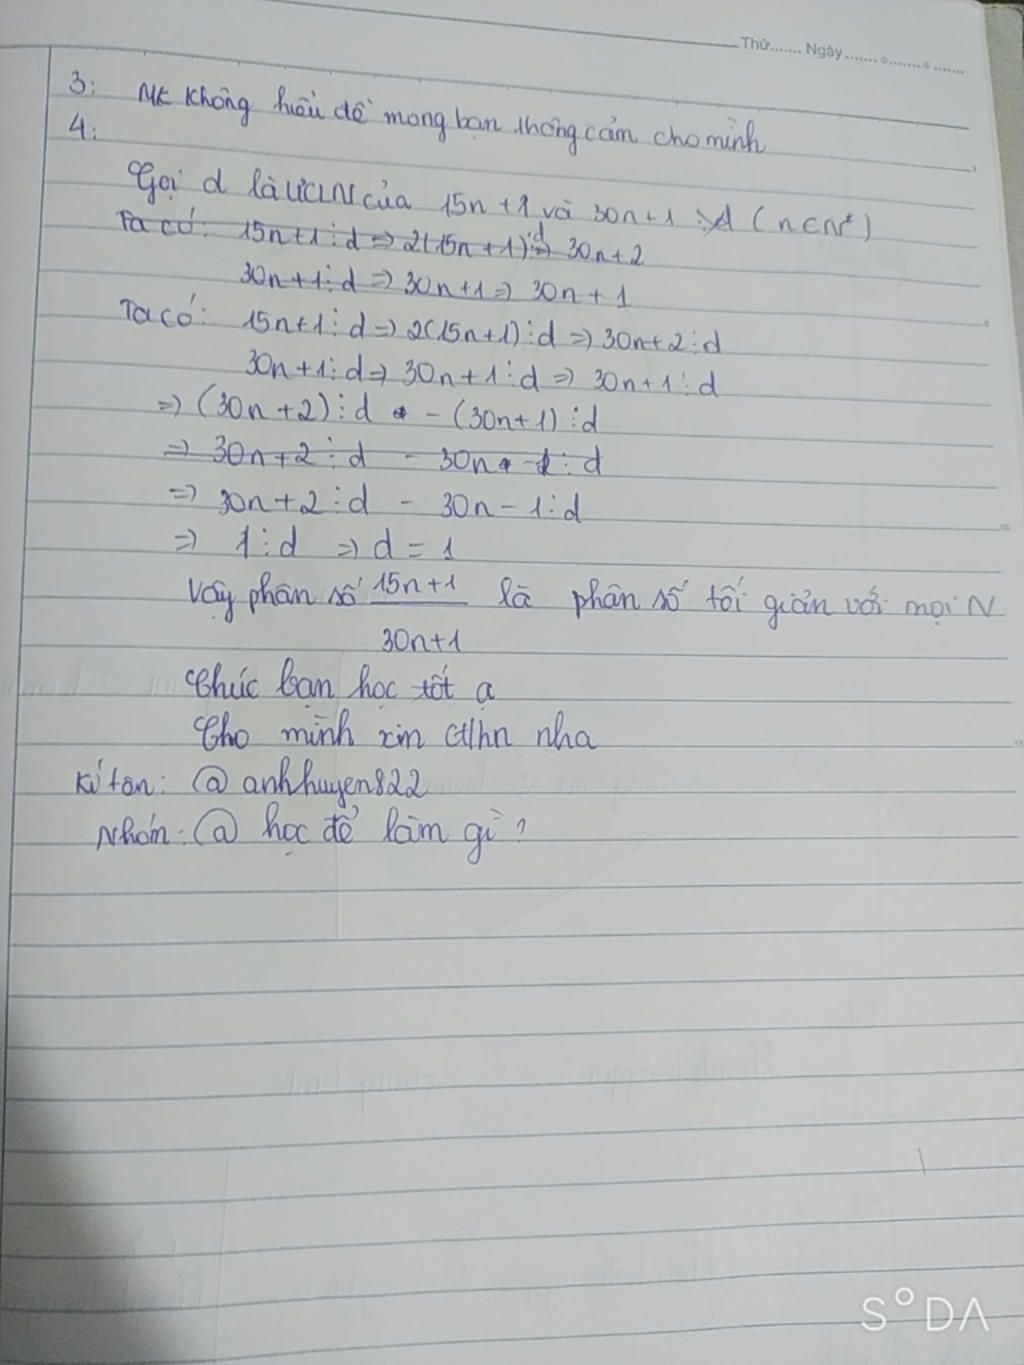 Thứ....... Ngày.......
3: Mk không hiểu đề mong bạn thông cảm cho mình
4:
Gọi d là ƯCLN của 15n+1 và 30n+1 (n∈N*)
Ta có: 15n+1⋮d => 2(15n+1)⋮d => 30n+2
30n+1⋮d => 30n+1 => 30n+1
Ta có: 15n+1⋮d => 2(15n+1)⋮d => 30n+2⋮d
30n+1⋮d => 30n+1⋮d => 30n+1⋮d
=> (30n+2)⋮d - (30n+1)⋮d
=> 30n+2⋮d - 30n-1⋮d
=> 30n+2⋮d - 30n-1⋮d
=> 1⋮d => d = 1
Vậy phân số 15n+1 là phân số tối giản với mọi N
30n+1
Chúc bạn học tốt ạ
Cho mình xin ctlhn nha
Kí tên: @ anhhuyen822
Nhóm: @ học để làm gì?
SODA